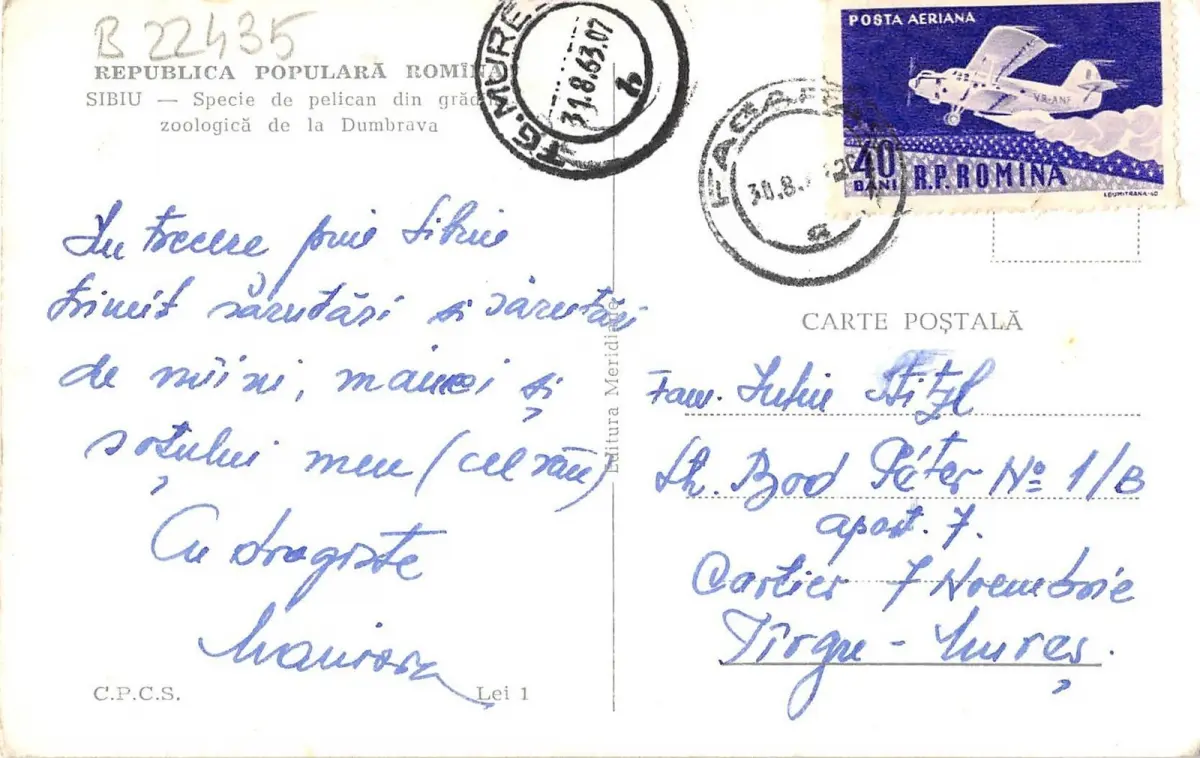 B 22435
REPUBLICA POPULARĂ ROMÎNĂ
SIBIU — Specie de pelican din grădina
zoologică de la Dumbrava
In trecere prin Sibiu
trimit sărutări și sărutări
de mîini, maicei și
soțului meu (cel rău)
Cu dragoste
C.P.C.S.
Lei 1
Editura Meridiane
TG. MUREȘ
31.8.63.07
b
FAGARAȘ
30.8.
20
a
POSTA AERIANA
YR-ANF
40
BANI
R.P. ROMINA
I. DUMITRANA-60
CARTE POȘTALĂ
Fam. Iuliu Stitzl
Str. Bod Péter No 1/B
apart. 7.
Cartier 7 Noembrie
Tîrgu-Mureș.